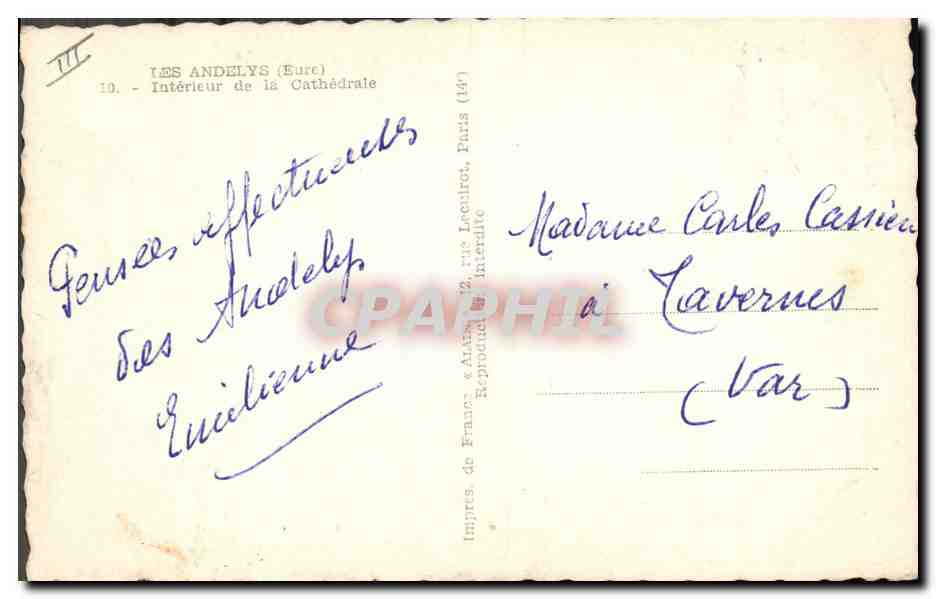 III
LES ANDELYS (Eure)
10. - Intérieur de la Cathédrale
Pensées affectueuses
des Andelys
Emilienne
Impres. de France « 12, rue Lecuirot, Paris (14e)
Reproduction interdite
Madame Carles Cassien
à Tavernes
(Var)
CPAPHIL